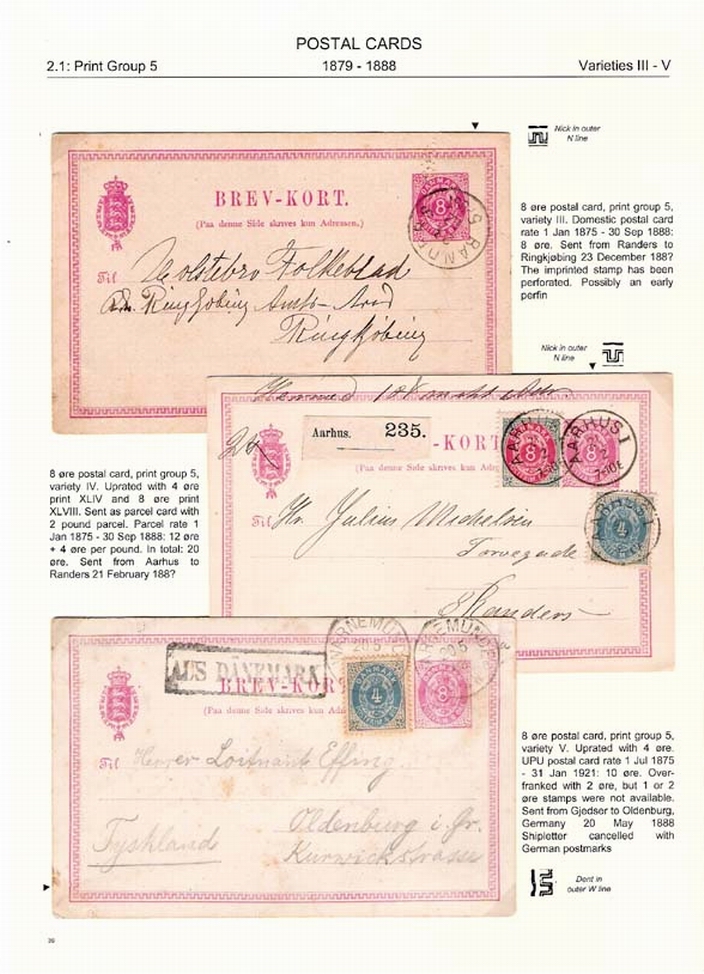 POSTAL CARDS
2.1: Print Group 5 1879 - 1888 Varieties III - V
Nick in outer
N line
BREV-KORT.
(Paa denne Side skrives kun Adressen.)
8
RANDERS
Til Holstebro Folkeblad
Ringkjøbing Amts-
Ringkjøbing
8 øre postal card, print group 5,
variety III. Domestic postal card
rate 1 Jan 1875 - 30 Sep 1888:
8 øre. Sent from Randers to
Ringkjøbing 23 December 188?
The imprinted stamp has been
perforated. Possibly an early
perfin
Nick in outer
N line
Aarhus. 235.
-KORT
(Paa denne Side skrives kun Adre
8
AARHUS I
8
4
Til Hr. Julius Michelsen
Torvegade
Randers
8 øre postal card, print group 5,
variety IV. Uprated with 4 øre
print XLIV and 8 øre print
XLVIII. Sent as parcel card with
2 pound parcel. Parcel rate 1
Jan 1875 - 30 Sep 1888: 12 øre
+ 4 øre per pound. In total: 20
øre. Sent from Aarhus to
Randers 21 February 188?
AUS DÄNEMARK
BREV-KORT
(Paa denne Side skrives kun Ad
WARNEMÜNDE
20 5
4
8
Til Herrer Loitnant Effing.
Oldenburg i. Gr.
Tyskland
Kurwickstrasse
8 øre postal card, print group 5,
variety V. Uprated with 4 øre.
UPU postal card rate 1 Jul 1875
- 31 Jan 1921: 10 øre. Over-
franked with 2 øre, but 1 or 2
øre stamps were not available.
Sent from Gjedser to Oldenburg,
Germany 20 May 1888
Shipletter cancelled with
German postmarks
Dent in
outer W line